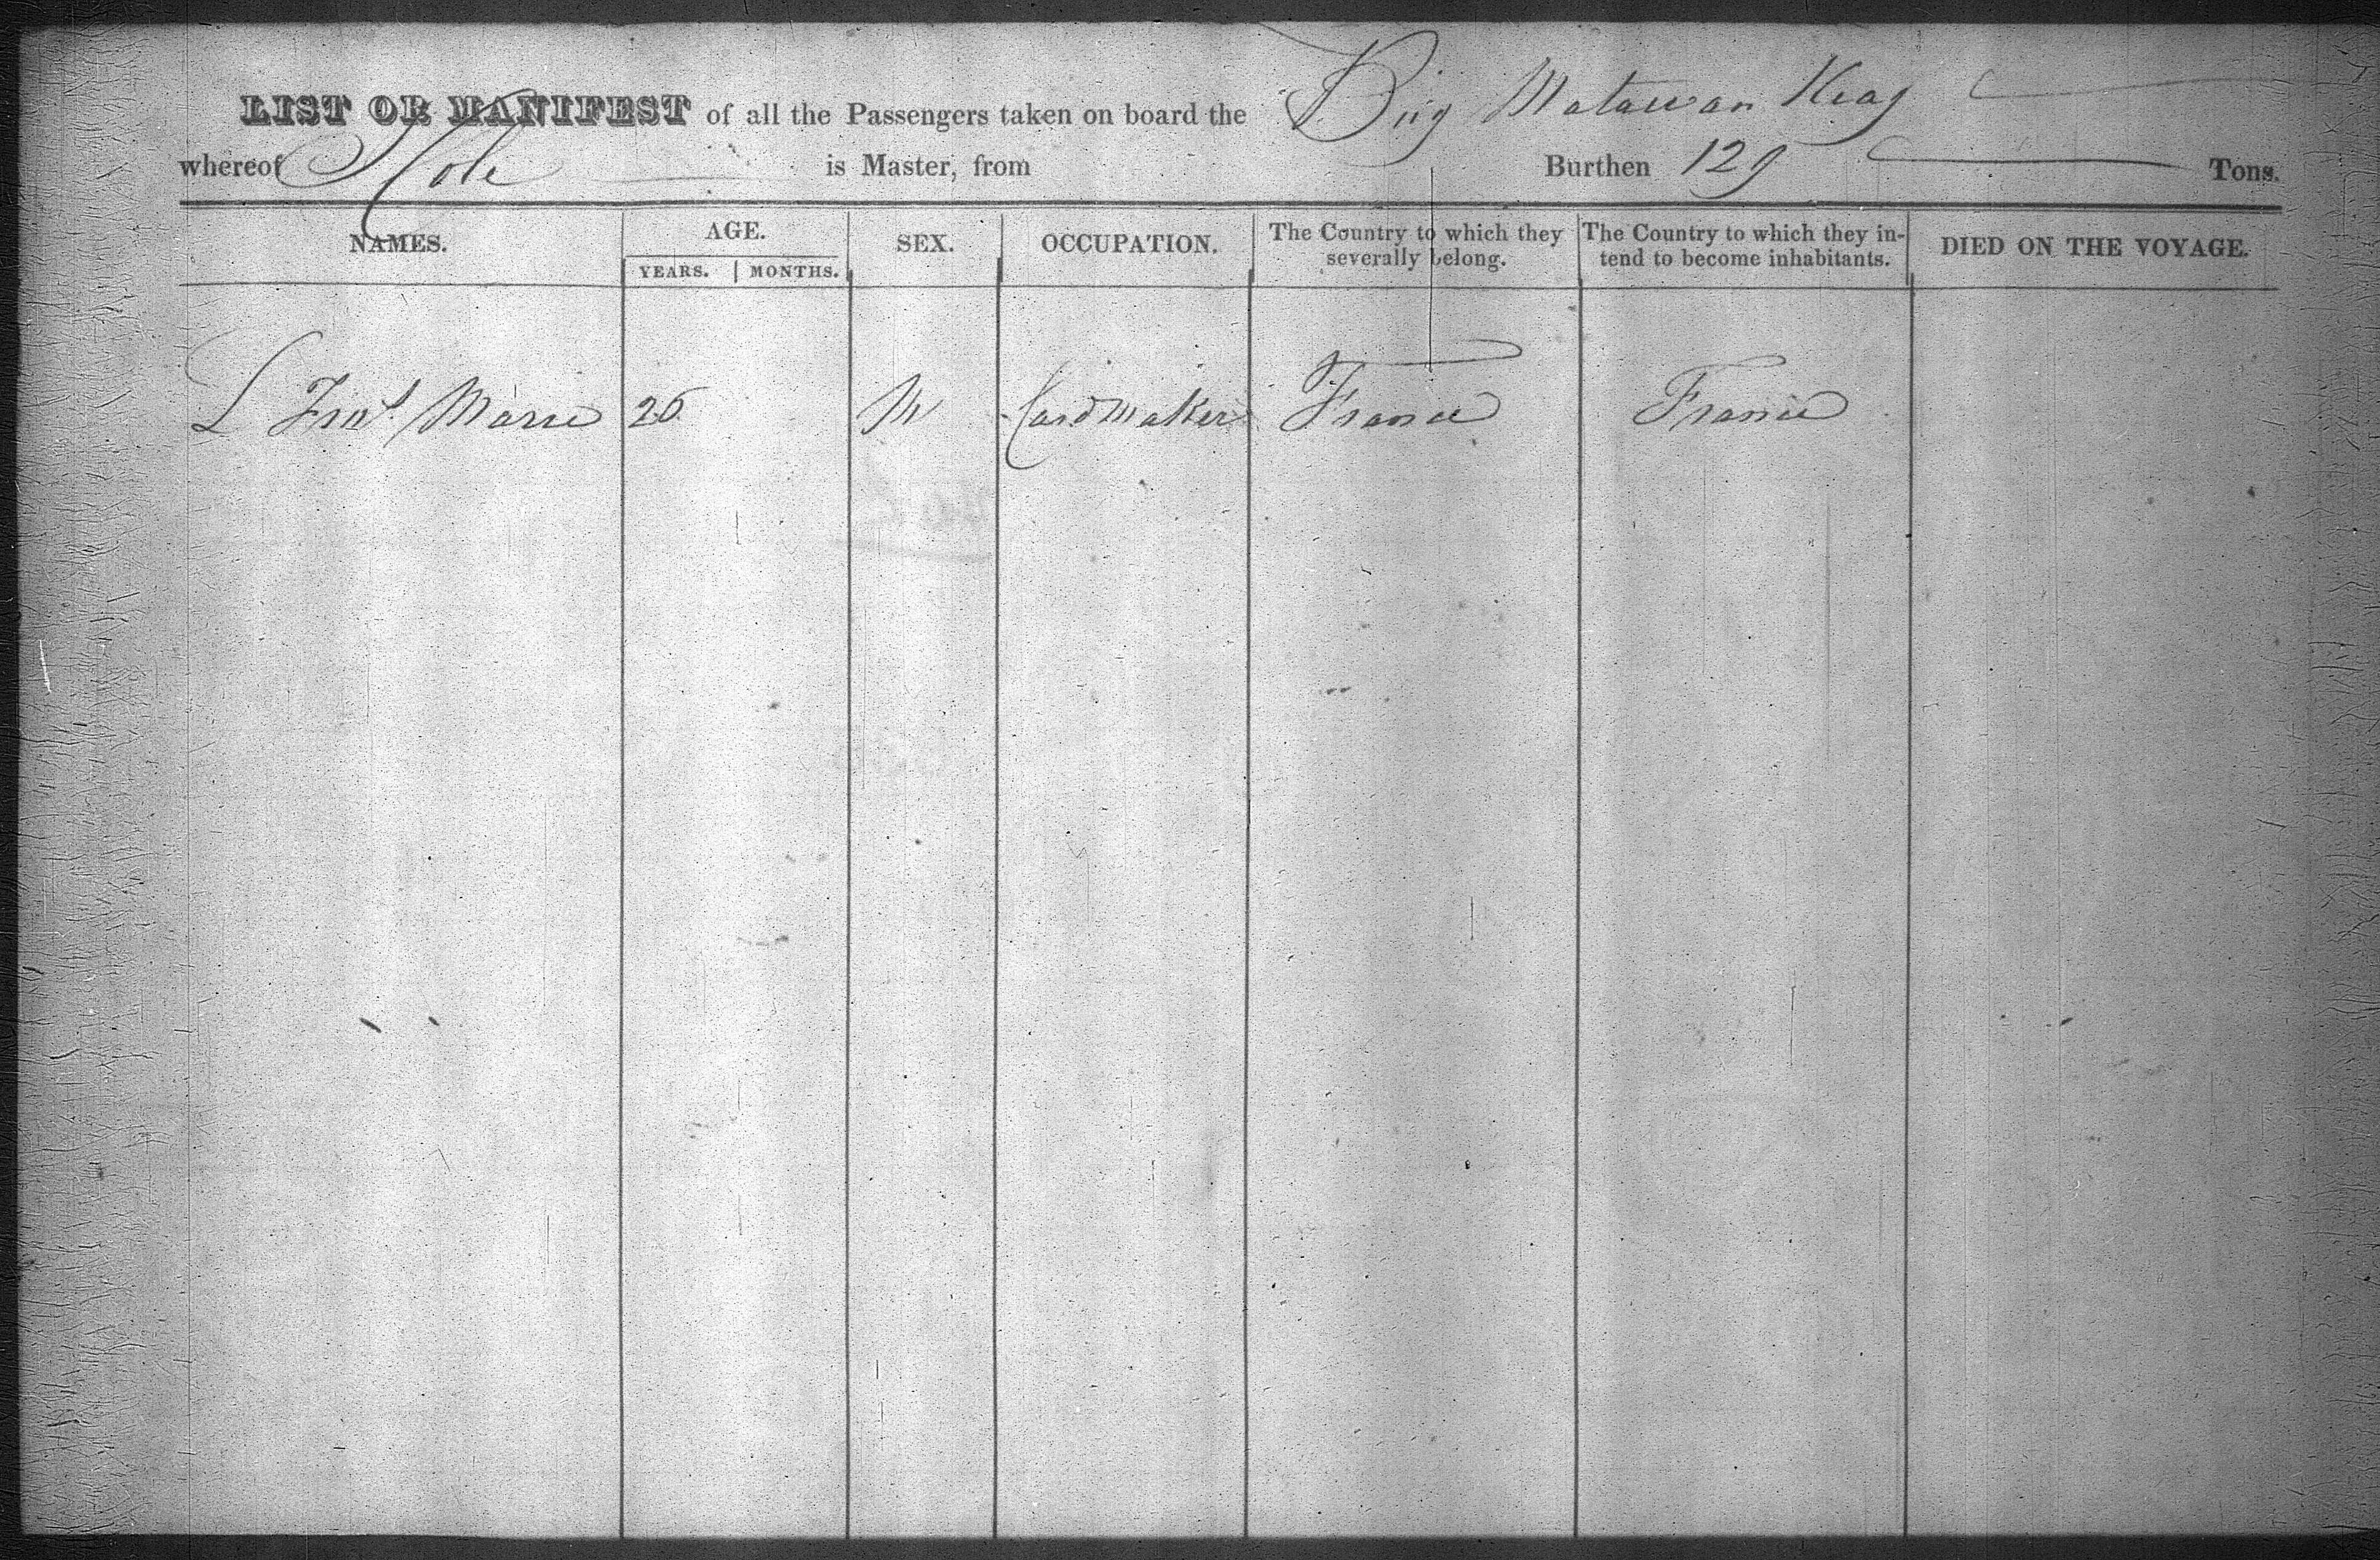 LIST OR MANIFEST of all the Passengers taken on board the Brig Matawan Keag
whereof Cole is Master, from Burthen 129 Tons.
NAMES. AGE. SEX. OCCUPATION. The Country to which they severally belong. The Country to which they intend to become inhabitants. DIED ON THE VOYAGE.
YEARS. MONTHS.
L 26 M Cardmaker France France